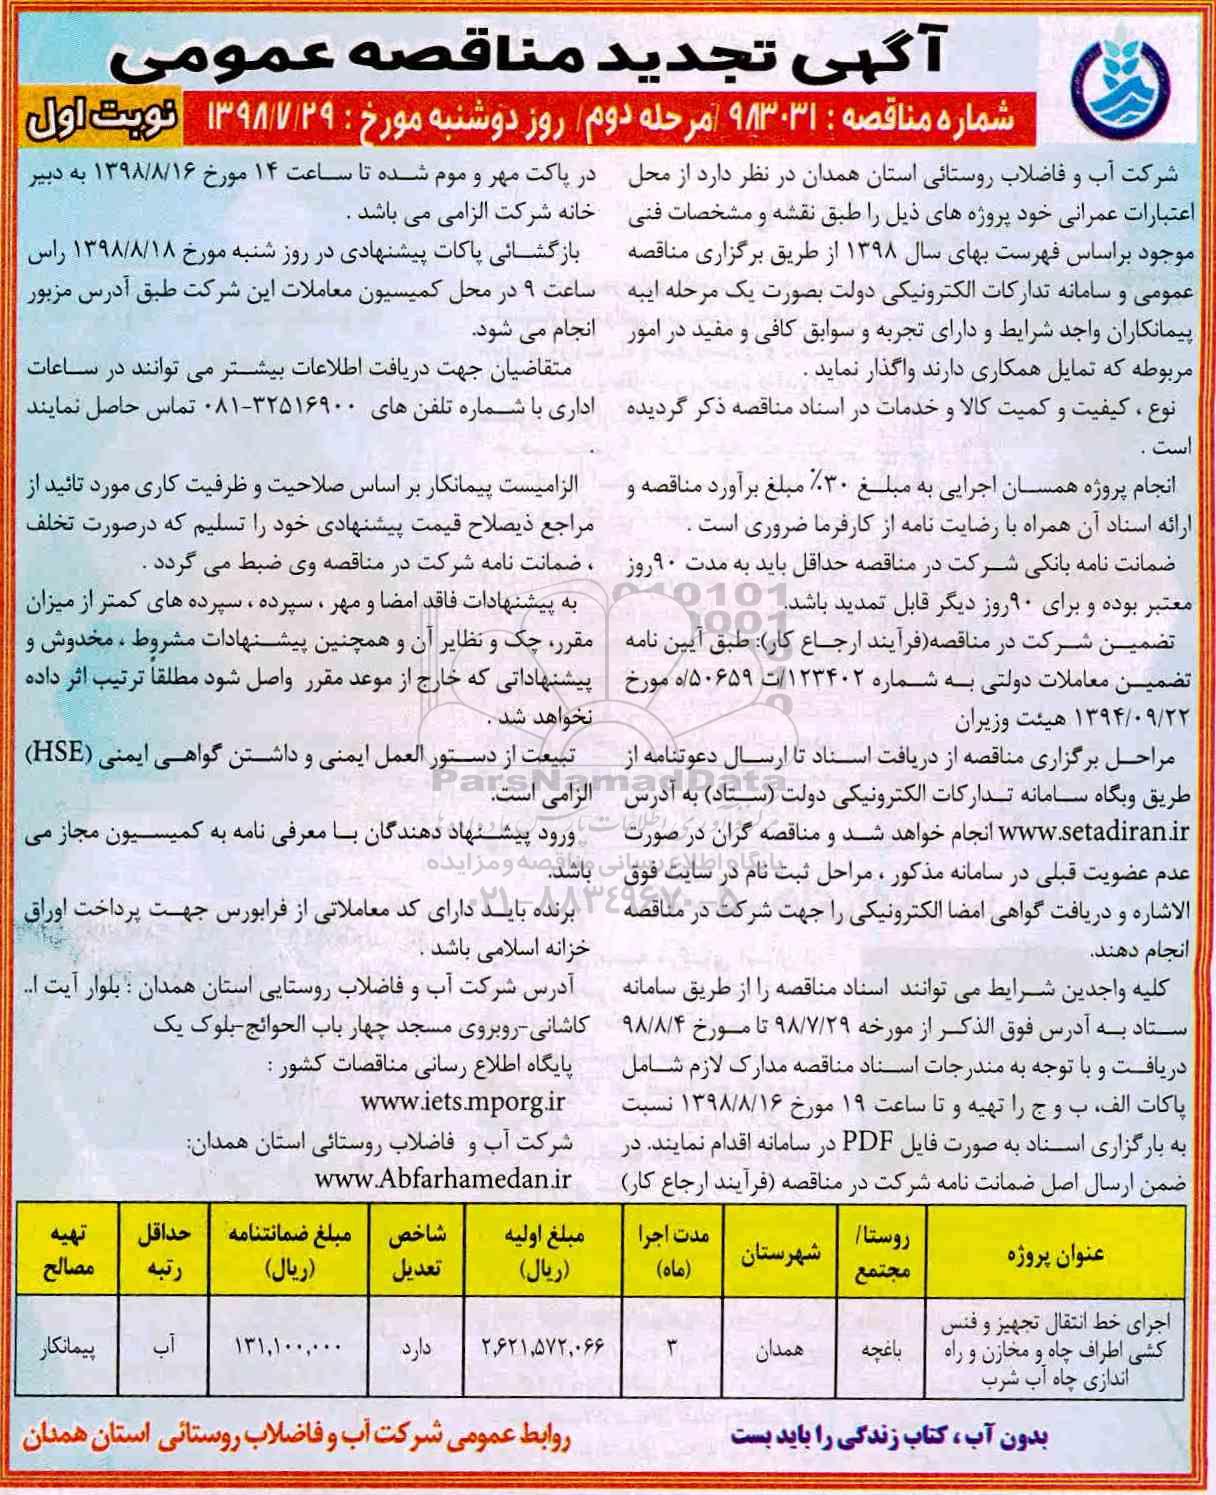 آگهی تجدید مناقصه عمومی
شماره مناقصه : ۹۸۳۰۳۱ /مرحله دوم/ روز دوشنبه مورخ : ۱۳۹۸/۷/۲۹
نوبت اول
شرکت آب و فاضلاب روستائی استان همدان در نظر دارد از محل
اعتبارات عمرانی خود پروژه های ذیل را طبق نقشه و مشخصات فنی
موجود براساس فهرست بهای سال ۱۳۹۸ از طریق برگزاری مناقصه
عمومی و سامانه تدارکات الکترونیکی دولت بصورت یک مرحله ایبه
پیمانکاران واجد شرایط و دارای تجربه و سوابق کافی و مفید در امور
مربوطه که تمایل همکاری دارند واگذار نماید .
نوع ، کیفیت و کمیت کالا و خدمات در اسناد مناقصه ذکر گردیده
است .
انجام پروژه همسان اجرایی به مبلغ ۳۰٪ مبلغ برآورد مناقصه و
ارائه اسناد آن همراه با رضایت نامه از کارفرما ضروری است .
ضمانت نامه بانکی شرکت در مناقصه حداقل باید به مدت ۹۰روز
معتبر بوده و برای ۹۰روز دیگر قابل تمدید باشد.
تضمین شرکت در مناقصه(فرآیند ارجاع کار): طبق آیین نامه
تضمین معاملات دولتی به شماره ۱۲۳۴۰۲/ت ۵۰۶۵۹/ه مورخ
۱۳۹۴/۰۹/۲۲ هیئت وزیران
مراحل برگزاری مناقصه از دریافت اسناد تا ارسال دعوتنامه از
طریق وبگاه سامانه تدارکات الکترونیکی دولت (ستاد) به آدرس
www.setadiran.ir انجام خواهد شد و مناقصه گران در صورت
عدم عضویت قبلی در سامانه مذکور ، مراحل ثبت نام در سایت فوق
الاشاره و دریافت گواهی امضا الکترونیکی را جهت شرکت در مناقصه
انجام دهند.
کلیه واجدین شرایط می توانند اسناد مناقصه را از طریق سامانه
ستاد به آدرس فوق الذکر از مورخه ۹۸/۷/۲۹ تا مورخ ۹۸/۸/۴
دریافت و با توجه به مندرجات اسناد مناقصه مدارک لازم شامل
پاکات الف، ب و ج را تهیه و تا ساعت ۱۹ مورخ ۱۳۹۸/۸/۱۶ نسبت
به بارگزاری اسناد به صورت فایل PDF در سامانه اقدام نمایند. در
ضمن ارسال اصل ضمانت نامه شرکت در مناقصه (فرآیند ارجاع کار)
در پاکت مهر و موم شده تا ساعت ۱۴ مورخ ۱۳۹۸/۸/۱۶ به دبیر
خانه شرکت الزامی می باشد .
بازگشائی پاکات پیشنهادی در روز شنبه مورخ ۱۳۹۸/۸/۱۸ راس
ساعت ۹ در محل کمیسیون معاملات این شرکت طبق آدرس مزبور
انجام می شود.
متقاضیان جهت دریافت اطلاعات بیشتر می توانند در ساعات
اداری با شماره تلفن های ۳۲۵۱۶۹۰۰-۰۸۱ تماس حاصل نمایند
.
الزامیست پیمانکار بر اساس صلاحیت و ظرفیت کاری مورد تائید از
مراجع ذیصلاح قیمت پیشنهادی خود را تسلیم که درصورت تخلف
، ضمانت نامه شرکت در مناقصه وی ضبط می گردد .
به پیشنهادات فاقد امضا و مهر ، سپرده ، سپرده های کمتر از میزان
مقرر، چک و نظایر آن و همچنین پیشنهادات مشروط ، مخدوش و
پیشنهاداتی که خارج از موعد مقرر واصل شود مطلقاً ترتیب اثر داده
نخواهد شد .
تبیعت از دستور العمل ایمنی و داشتن گواهی ایمنی (HSE)
الزامی است.
ورود پیشنهاد دهندگان با معرفی نامه به کمیسیون مجاز می
باشد.
برنده باید دارای کد معاملاتی از فرابورس جهت پرداخت اوراق
خزانه اسلامی باشد .
آدرس شرکت آب و فاضلاب روستایی استان همدان : بلوار آیت ا..
کاشانی-روبروی مسجد چهار باب الحوائج-بلوک یک
پایگاه اطلاع رسانی مناقصات کشور :
www.iets.mporg.ir
شرکت آب و فاضلاب روستائی استان همدان:
www.Abfarhamedan.ir
ParsNamadData
پایگاه اطلاع رسانی مناقصه و مزایده
۰۲۱-۸۸۳۴۹۶۷۰-۵
عنوان پروژه | روستا/ مجتمع | شهرستان | مدت اجرا (ماه) | مبلغ اولیه (ریال) | شاخص تعدیل | مبلغ ضمانتنامه (ریال) | حداقل رتبه | تهیه مصالح
اجرای خط انتقال تجهیز و فنس کشی اطراف چاه و مخازن و راه اندازی چاه آب شرب | باغچه | همدان | ۳ | ۲,۶۲۱,۵۷۲,۰۶۶ | دارد | ۱۳۱,۱۰۰,۰۰۰ | آب | پیمانکار
بدون آب ، کتاب زندگی را باید بست
روابط عمومی شرکت آب و فاضلاب روستائی استان همدان